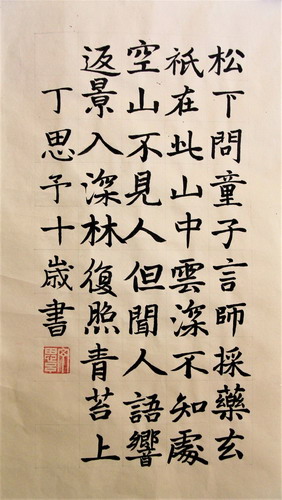 松下問童子言師採藥去
祇在此山中雲深不知處
空山不見人但聞人語響
返景入深林復照青苔上
丁思予十歲書